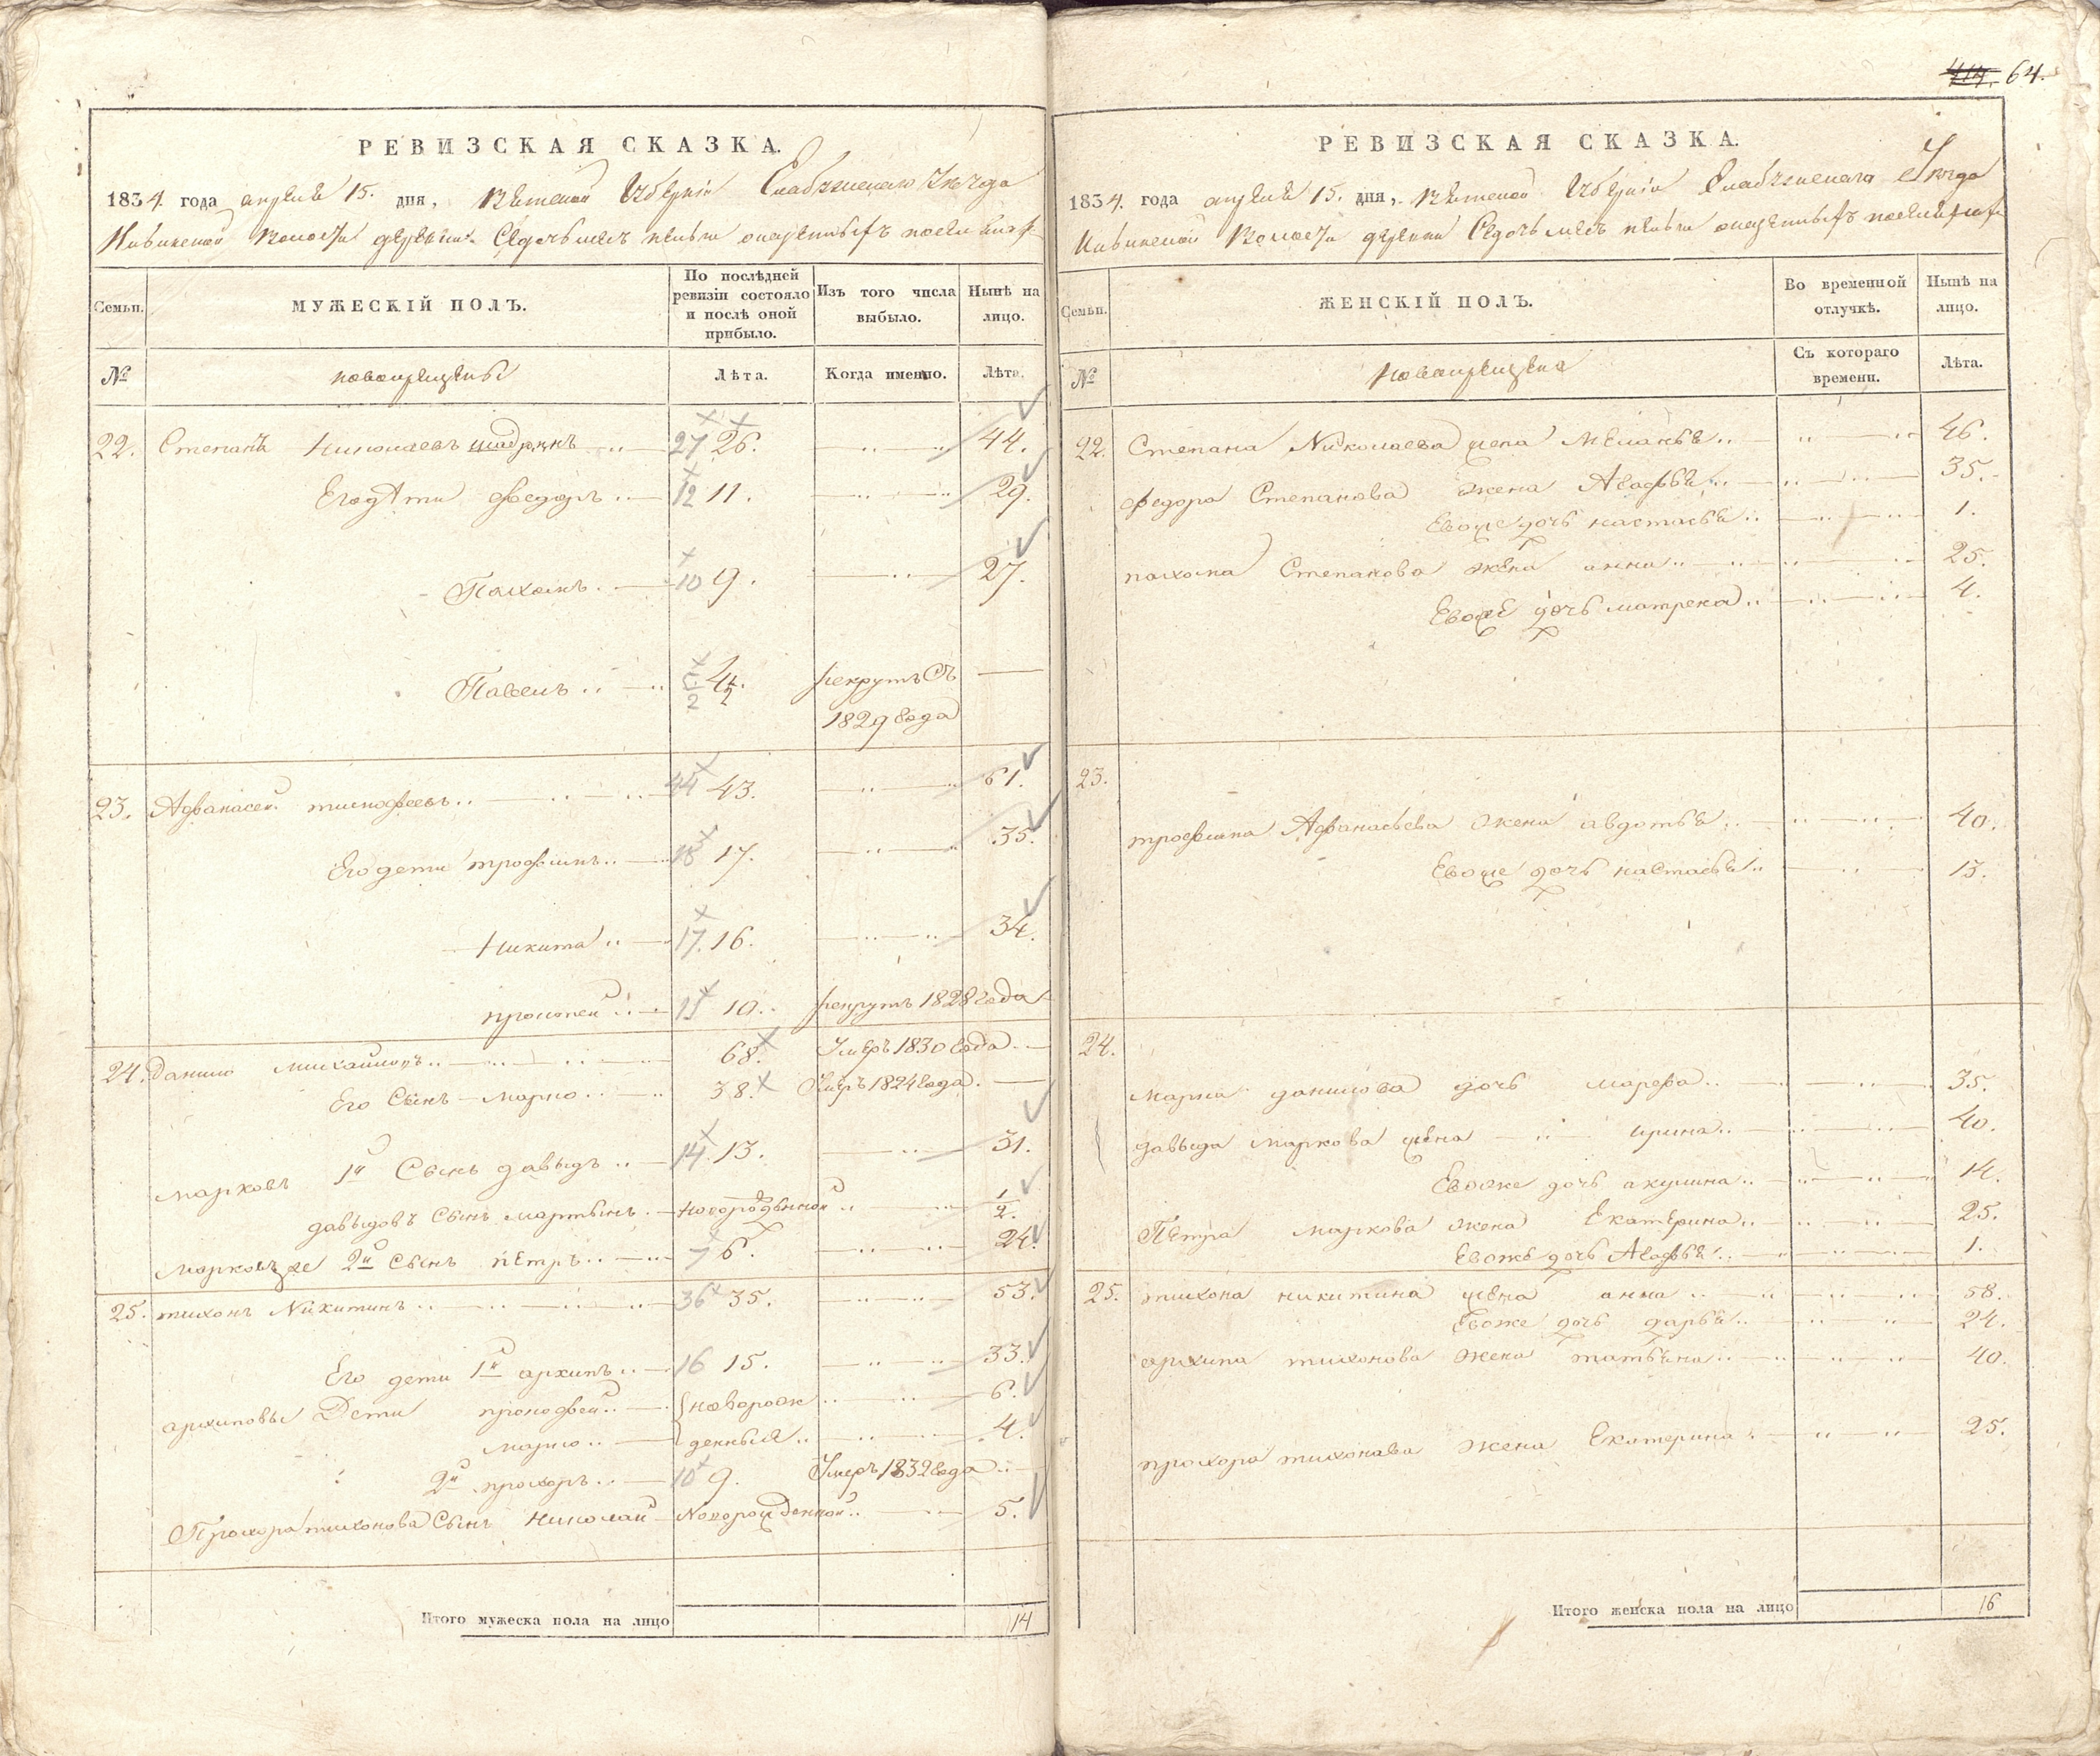 414. 64.
РЕВИЗСКАЯ СКАЗКА.
1834. года апреля 15. дня, Вятской Губерніи Елабужскаго Уезда
волости деревни
Семьи.
МУЖЕСКІЙ ПОЛЪ.
По послѣдней ревизіи состояло и послѣ оной прибыло.
Изъ того числа выбыло.
Нынѣ на лицо.
№
новокрещены
Лѣта.
Когда именно.
Лѣта.
22. Степанъ Николаевъ шадринъ 27 26. 44.
Его дѣти федоръ 12 11. 29.
Пахомъ 10 9. 27.
Павелъ 4 1/2. рекрутъ съ —
1829 года
23. Афанасей тимофеевъ 44 43. 61.
Его дети трофимъ 18 17. 35.
Никита 17. 16. 34.
прокопей 11 10. рекрутъ 1828 года
24. данило михайловъ 68. Умеръ 1830 года —
Его Сынъ марко 38. Умеръ 1824 года —
марковъ 1й Сынъ давыдъ 14. 13. 31.
давыдовъ Сынъ мартынъ новорожденной 1/2.
марковъ же 2й Сынъ петръ 7 6. 24.
25. тихонъ Никитинъ 36 35. 53.
Его дети 1й архипъ 16 15. 33.
архиповы Дети прокофей новорож 6.
марко денныя 4.
2й прохоръ 10 9. Умеръ 1832 года —
Прохора тихонова Сынъ Николай Новорожденной 5.
Итого мужеска пола на лицо 14
РЕВИЗСКАЯ СКАЗКА.
1834. года апреля 15. дня, Вятской Губерніи Елабужскаго Уезда
волости деревни
Семьи.
ЖЕНСКІЙ ПОЛЪ.
Во временной отлучкѣ.
Нынѣ на лицо.
№
Новокрещена
Съ котораго времени.
Лѣта.
22. Степана Николаева жена Меланья 46.
федора Степанова жена Агафья 35.
Евоже дочь настасья 1.
пахома Степанова жена анна 25.
Евоже дочь матрена 4.
23.
трофима Афанасьева жена авдотья 40.
Евоже дочь настасья 13.
24.
марка данилова дочь марфа 35.
давыда маркова жена ирина 40.
Евоже дочь акулина 14.
Петра маркова жена Екатерина 25.
Евожъ дочь Агафья 1.
25. тихона никитина жена анна 58.
Евоже дочь дарья 24.
архипа тихонова жена татьяна 40.
прохора тихонова жена Екатерина 25.
Итого женска пола на лицо 16